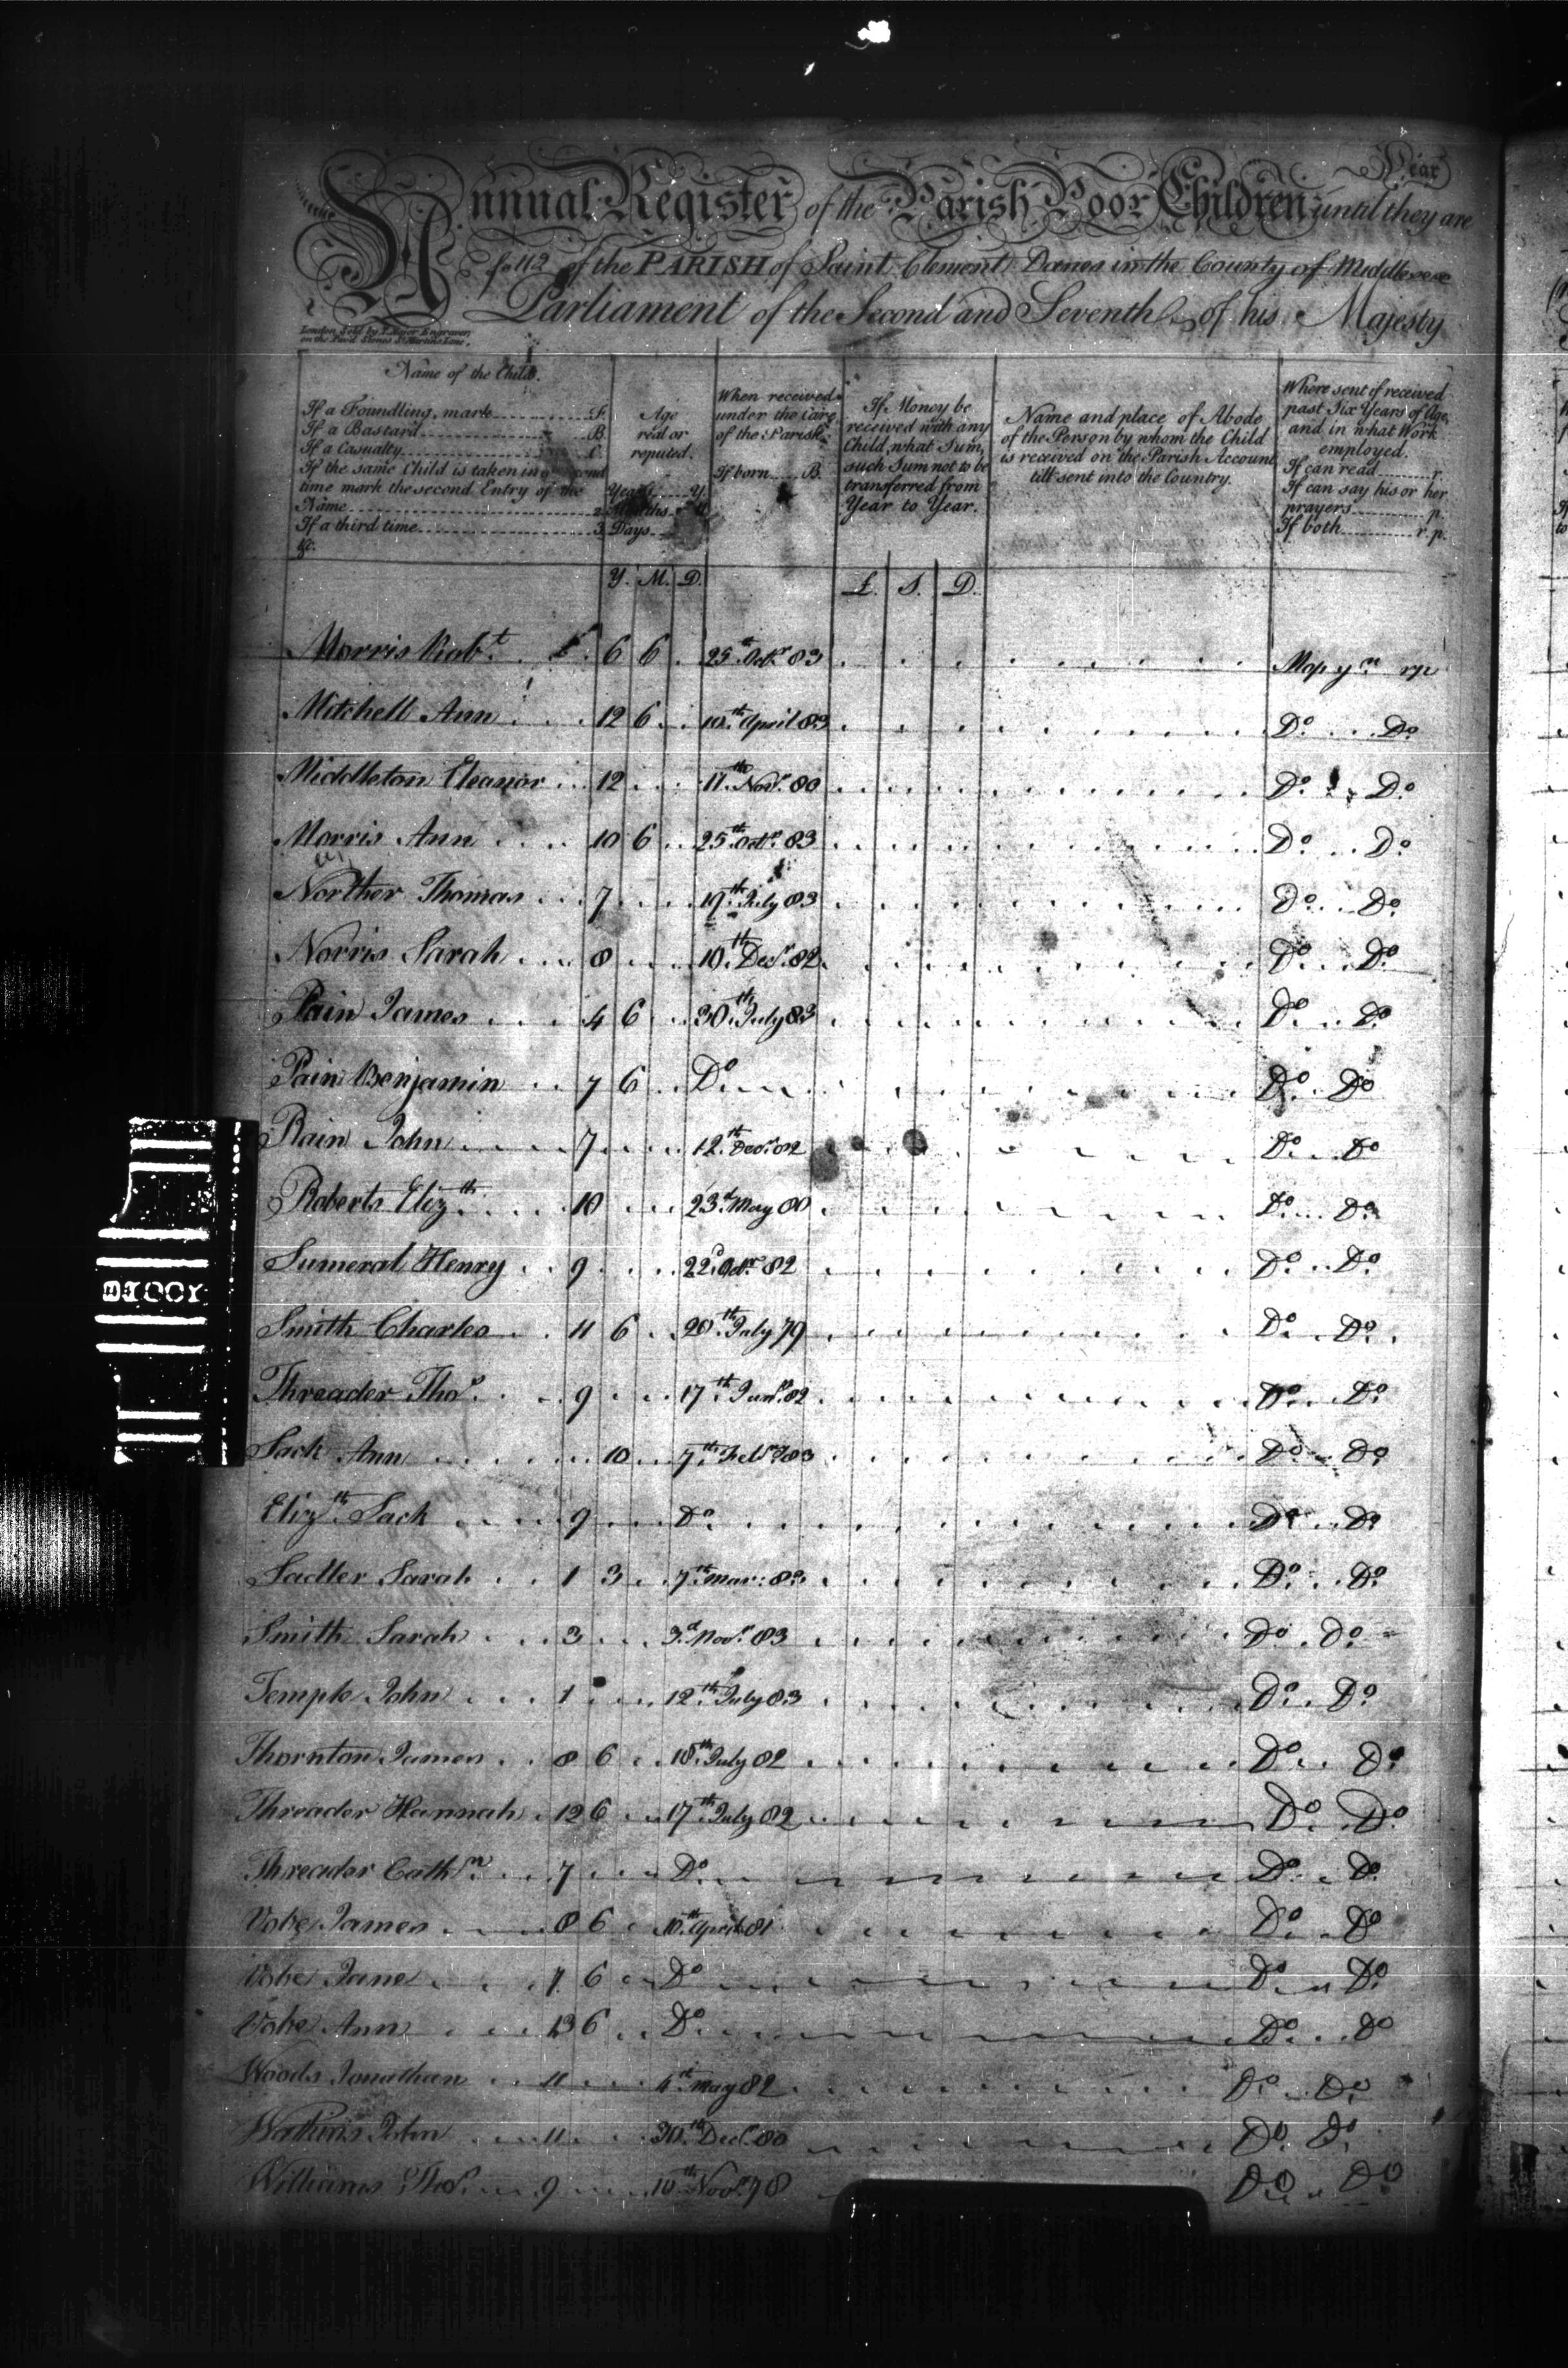 Year
Annual Register of the Parish Poor Children until they are
fo 112 of the PARISH of Saint Clement Danes in the County of Middlesex
Parliament of the Second and Seventh of his Majesty
London Sold by
on the Pav'd Stones St. Martins Lane.
Name of the Child.
If a Foundling, mark F.
If a Bastard B.
If a Casualty C.
If the same Child is taken in a second
time mark the second Entry of the
Name 2.
If a third time 3.
&c.
Age
real or
reputed.
Years Y.
Months M.
Days
When received
under the Care
of the Parish.
If born B.
If Money be
received with any
Child, what Sum,
such Sum not to be
transferred from
Year to Year.
Name and place of Abode
of the Person by whom the Child
is received on the Parish Account
till sent into the Country.
Where sent if received
past Six Years of Age,
and in what Work
employed.
If can read r.
If can say his or her
prayers p.
If both r. p.
Y. M. D. £. S. D.
Morris Robt. 6 6 25th Octr 83 Mop yn rp
Mitchell Ann 12 6 10th April 83 Do Do
Middleton Eleanor 12 11th Novr. 80 Do Do
Morris Ann 10 6 25th Octr. 83 Do Do
Norther Thomas 7 19th July 83 Do Do
Norris Sarah 8 10th Decr. 82 Do Do
Pain James 4 6 30th July 83 Do Do
Pain Benjamin 7 6 Do Do Do
Pain John 7 12th Decr. 82 Do Do
Roberts Elizth. 10 23d May 80 Do Do
Sumeral Henry 9 22d Octr. 82 Do Do
Smith Charles 11 6 20th July 79 Do Do
Threader Thos. 9 17th Jany. 82 Do Do
Sack Ann 10 7th Feby. 83 Do Do
Elizth. Sack 9 Do Do Do
Sadler Sarah 1 3 7th Mar: Do Do
Smith Sarah 3 3d Novr. 83 Do Do
Temple John 1 12th July 83 Do Do
Thornton James 8 6 18th July 82 Do Do
Threader Hannah 12 6 17th July 82 Do Do
Threader Cathn. 7 Do Do Do
Vobe James 8 6 10th April 81 Do Do
Vobe Jane 7 6 Do Do Do
Vobe Ann 13 6 Do Do Do
Woods Jonathan 11 4th May 82 Do Do
Watkins John 11 30th Decr. 80 Do Do
Williams Thos. 9 10th Novr. 78 Do Do